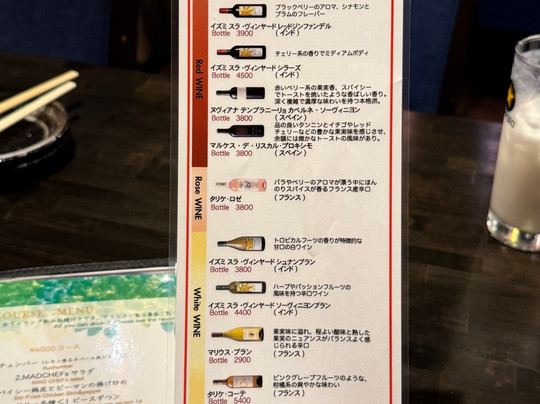 ブラックベリーのアロマ、シナモンと
プラムのフレーバー
イズミ スラ・ヴィンヤード レッドジンファンデル
Bottle 3900 (インド)
チェリー系の香りでミディアムボディ
イズミ スラ・ヴィンヤード シラーズ
Bottle 4500 (インド)
Red WINE
赤いベリー系の果実香、スパイシー
でトーストを焼いたような香ばしい香り。
深く複雑で濃厚な味わいを持つ本格派。
ヌヴィアナ テンプラニーリョ カベルネ・ソーヴィニヨン
Bottle 3800 (スペイン)
品の良いタンニンとイチゴやレッド
チェリーなどの豊かな果実味を感じさせ、
余韻には微かなトーストの風味があり。
マルケス・デ・リスカル・プロキシモ
Bottle 3800 (スペイン)
Rose WINE
バラやベリーのアロマが漂う中にほん
のりスパイスが香るフランス産辛口
タリケ・ロゼ
Bottle 3800 (フランス)
トロピカルフーツの香りが特徴的な
甘口の白ワイン
イズミ スラ・ヴィンヤード シュナンブラン
Bottle 3800 (インド)
White WINE
ハーブやパッションフルーツの
風味を持つ辛口ワイン
イズミ スラ・ヴィンヤード ソーヴィニヨンブラン
Bottle 4400 (インド)
果実味に溢れ、程よい酸味と熟した
果実のニュアンスがバランスよく感
じられる辛口
マリウス・ブラン
Bottle 2900 (フランス)
ピンクグレープフルーツのような、
柑橘系の爽やかな味わい
タリケ・コーテ
Bottle 5400 (フランス)
COURSE MENU
¥4000コース
2.MADCHEFsサラダ
MAD CHEFs salad